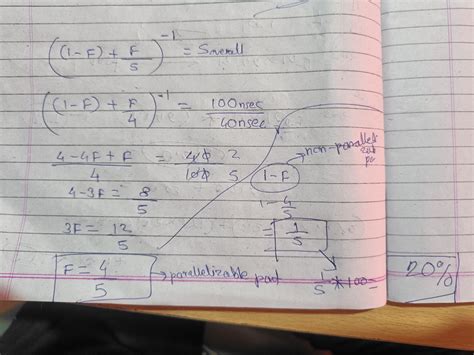 ((1-F) + F/5)^-1 = Soverall
((1-F) + F/4)^-1 = 100nsec/40nsec
(4-4F+F)/4 = 40/100 2/5
4-3F = 8/5
3F = 12/5
F = 4/5 → parallelizable part
1-F → non-paralleli
1 - 4/5
= 1/5
1/5 * 100 =
20%